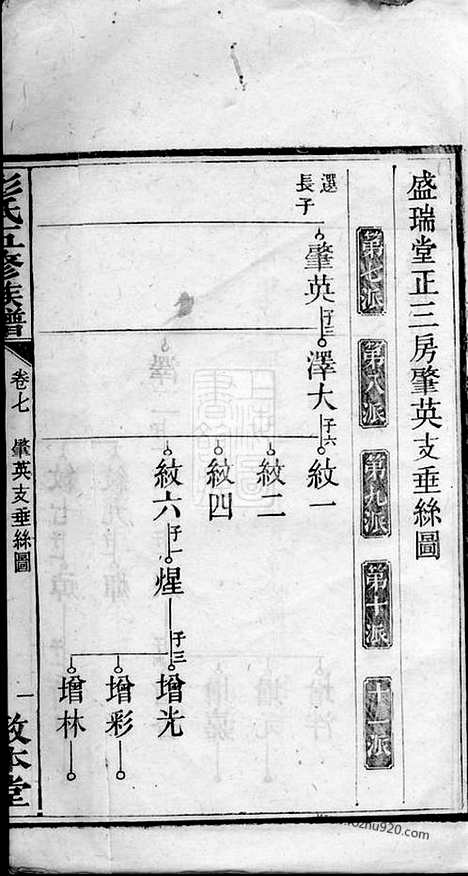 盛瑞堂正三房肇英支垂絲圖
第七派
第八派
第九派
第十派
十一派
選
長子
肇英
子三
澤大
子六
紋一
紋二
紋四
紋六
子一
煋
子三
增光
增彩
增林
彭氏五修族譜
卷七
肇英支垂絲圖
一
敦本堂